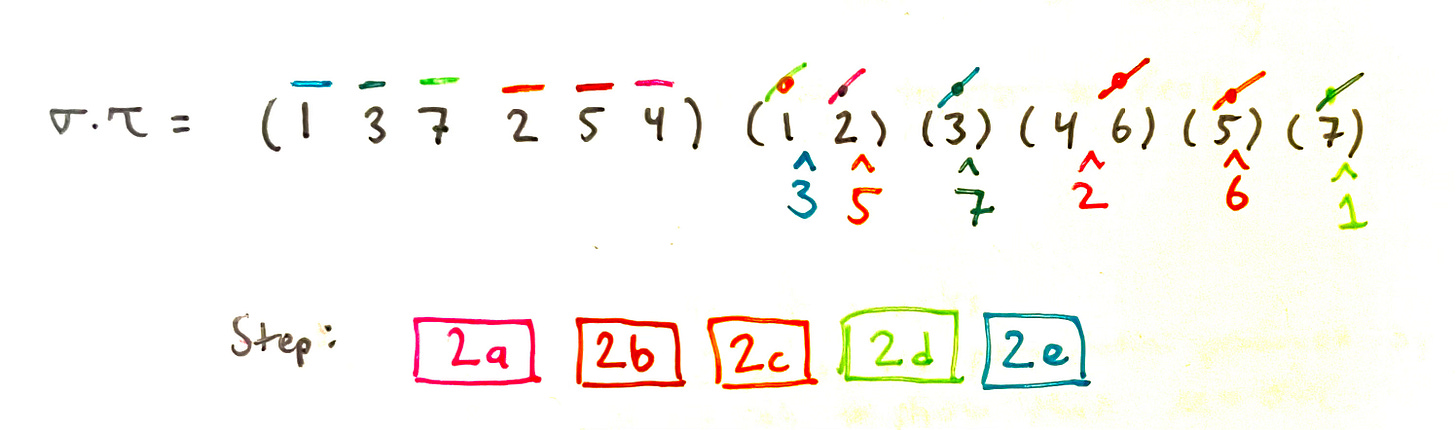 σ.τ = (1 3 7 2 5 4) (1 2) (3) (4 6) (5) (7)
^ ^ ^ ^ ^ ^
3 5 7 2 6 1
Step: 2a 2b 2c 2d 2e